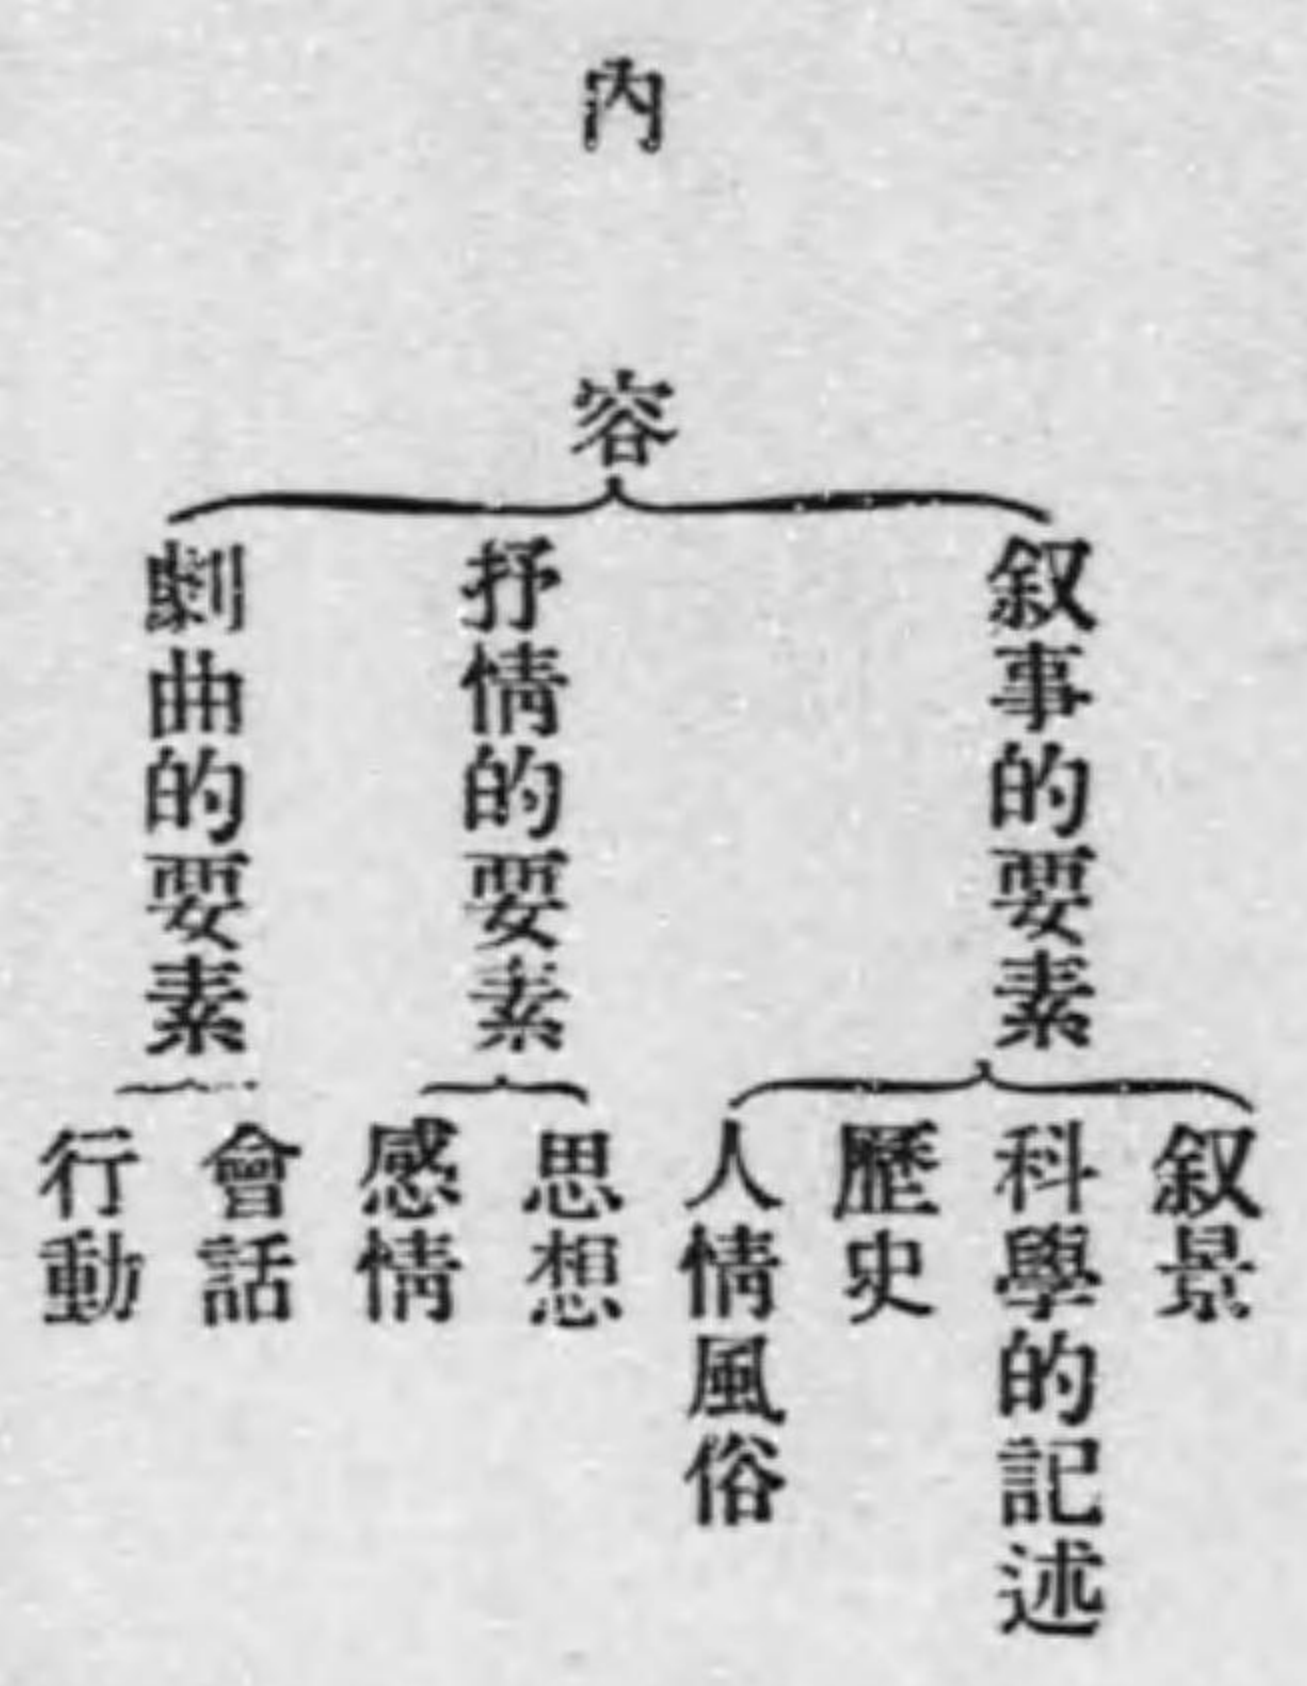 內容
叙事的要素
叙景
科學的記述
歷史
人情風俗
抒情的要素
思想
感情
劇曲的要素
會話
行動